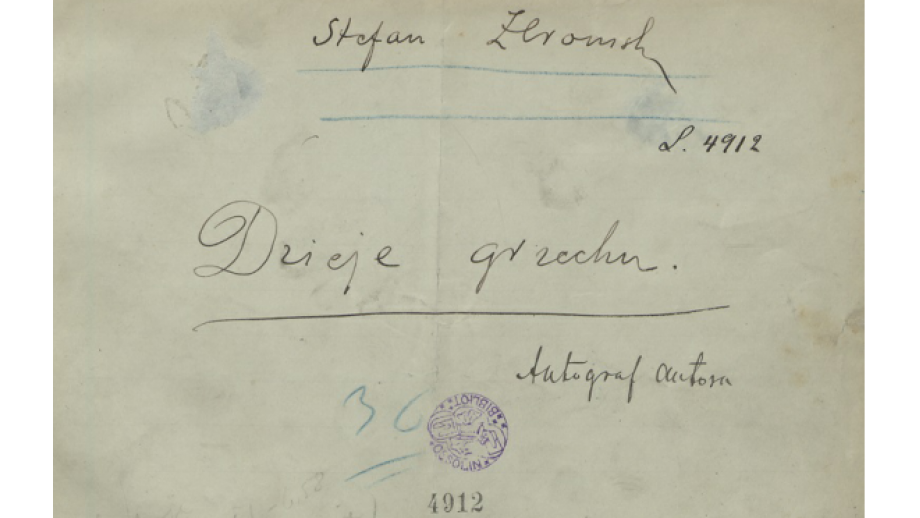 Stefan Żeromski
L. 4912
Dzieje grzechu.
Autograf autora
36
4912